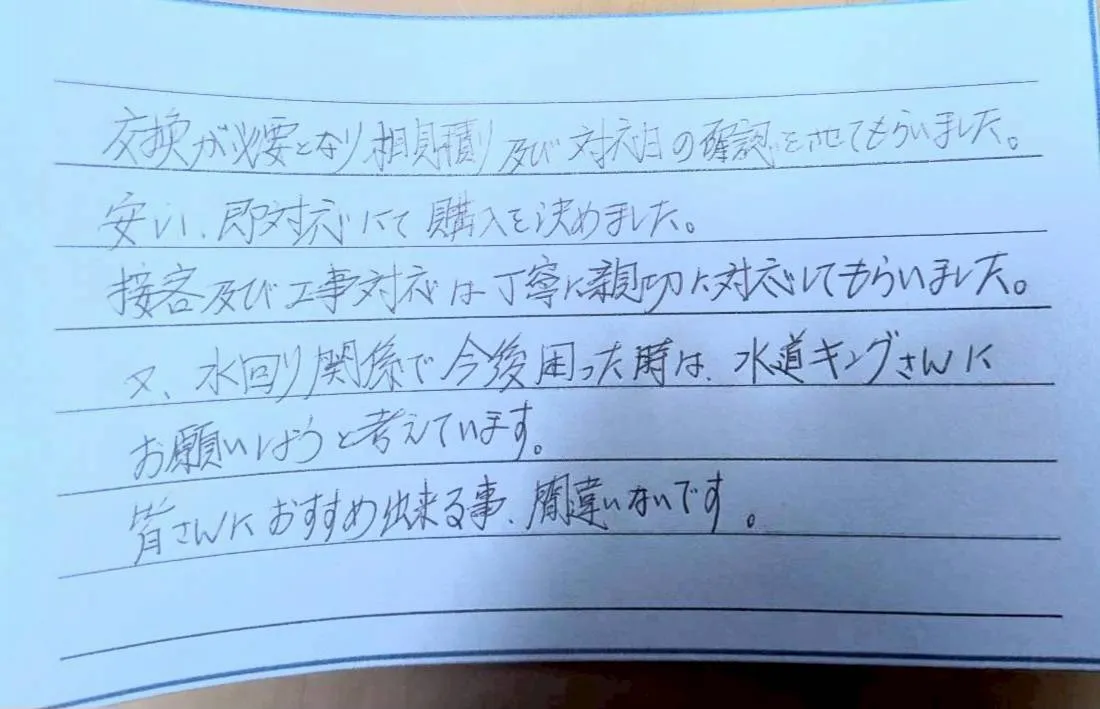 交換が必要となり相見積り及び対応日の確認をさせてもらいました。
安い、即対応にて購入を決めました。
接客及び工事対応は丁寧に親切に対応してもらいました。
又、水回り関係で今後困った時は、水道キングさんに
お願いしようと考えています。
皆さんにおすすめ出来る事、間違いないです。